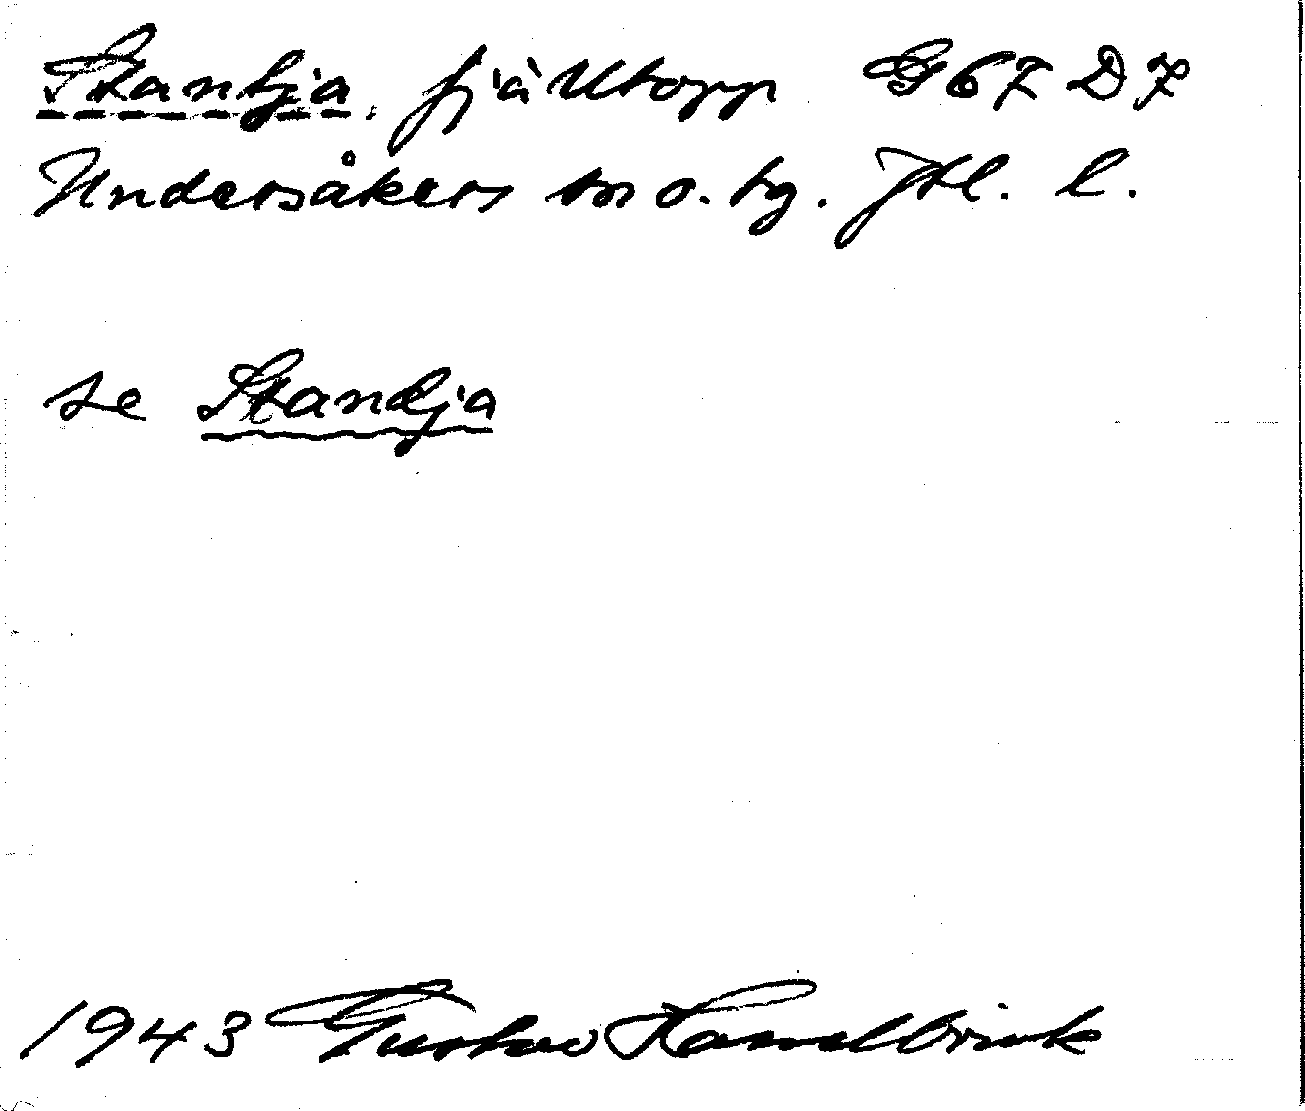 Stantja, fjälltopp G67 D7
Undersåkers sn o. tg. Jtl. l.
se Standja
1943 Gustav Hasselbrink